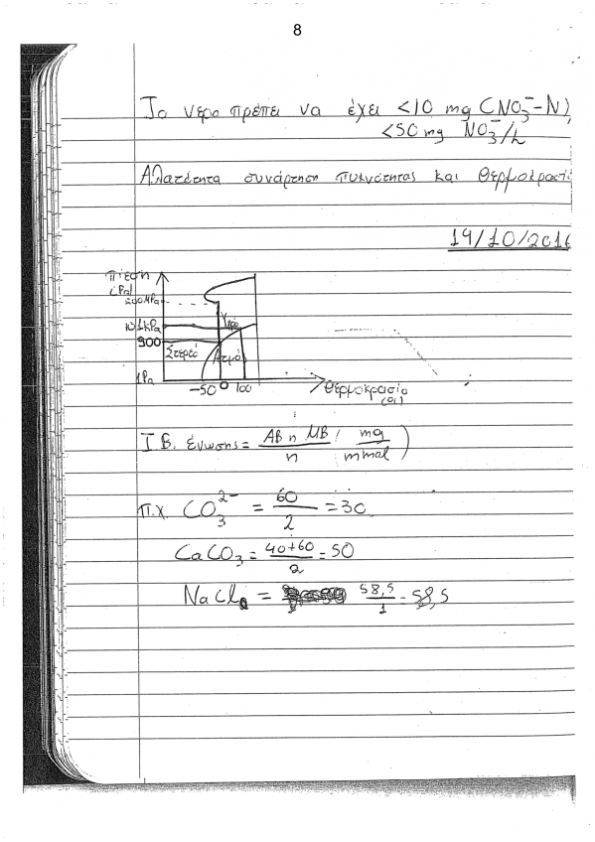 8
Το νερο πρέπει να έχει <10 mg (NO3⁻-N),
<50 mg NO3⁻/L
Αλατότητα συνάρτηση πυκνότητας και θερμοκρασί
19/10/201
πίεση
(Pa)
200MPa
101kPa
900
1Pa
Στερεό
Υγρό
Ατμό
-50 0 100
θερμοκρασία
(οC)
Ι.Β. ένωσης = ΑΒ η ΜΒ / n ( mg / mmol )
π.χ. CO3²⁻ = 60/2 = 30
CaCO3 = 40+60/2 = 50
NaCl = 58,5/1 = 58,5